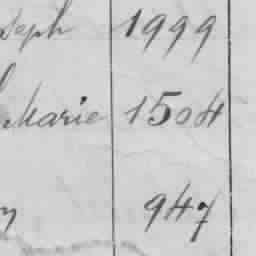 seph 1999
Marie 1504
947